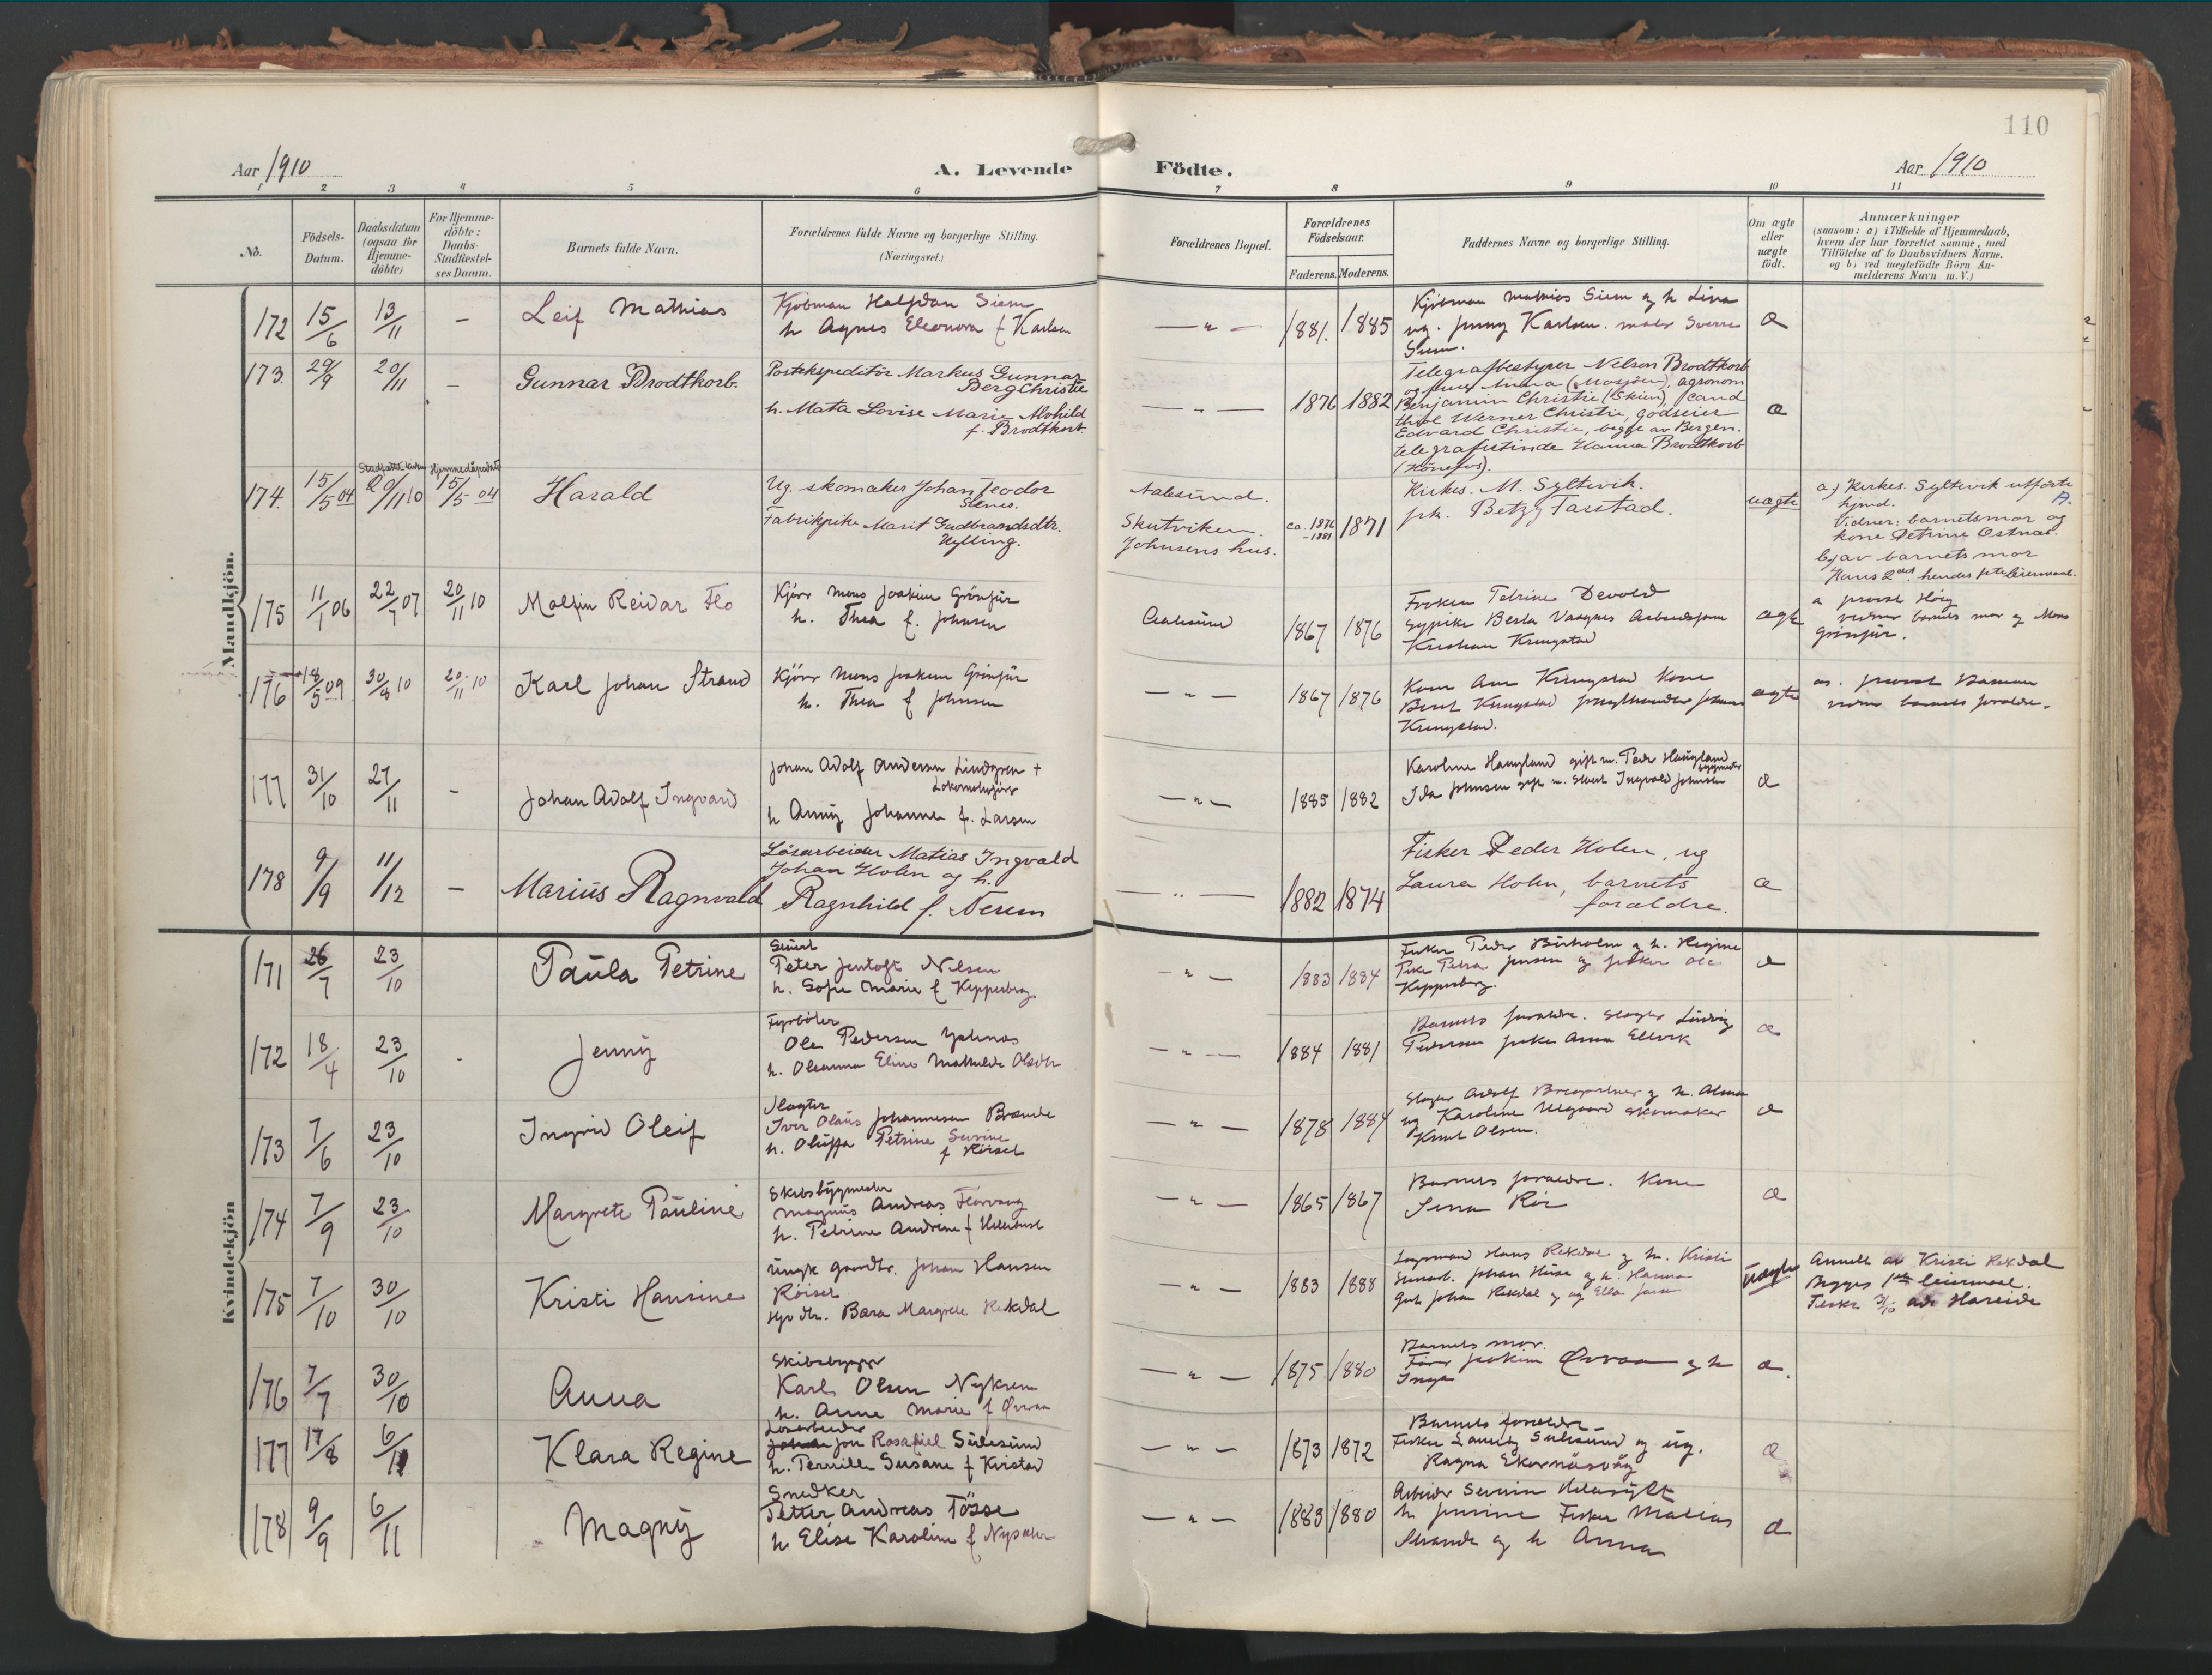 110
Aar 1910
A. Levende
Födte.
Aar 1910
1 2 3 4 5 6 7 8 9 10 11
No.
Födsels-
Datum.
Daabsdatum
(ogsaa for
Hjemme-
döbte)
For Hjemme-
döbte:
Daabs-
Stadfæstel-
ses Datum.
Barnets fulde Navn.
Forældrenes fulde Navne og borgerlige Stilling.
(Næringsvei.)
Forældrenes Bopæl.
Forældrenes
Födselsaar.
Faderens. Moderens.
Faddernes Navne og borgerlige Stilling.
Om ægte
eller
uægte
födt.
Anmærkninger
(saasom: a) i Tilfælde af Hjemmedaab,
hvem der har forrettet samme, med
Tilföielse af to Daabsvidners Navne.
og b) ved uægtefödte Börn An-
melderens Navn m.V.)
Mandkjön.
172 15/6 13/11 - Leif Mathias
Kjöbman Halfdan Siem
h Agnes Eleonora f Karlsen
— " — 1881. 1885
Kjöbman Mathias Siem og h Lina
ug. Jenny Karlsen.
Siem.
æ
173. 29/9 20/11 - Gunnar Brodtkorb.
Postekspeditör Markus Gunnar
Berg Christie
h. Mata Lovise Marie
f. Brodtkorb.
— " — 1876 1882
Telegrafbestyrer Nelson Brodtkorb
og frue Anna (Mosjöen), agronom
Benjamin Christie (Skien), cand
theol Werner Christie, godseier
Edvard Christie, begge av Bergen.
telegrafistinde Hanna Brodtkorb
(Hönefos).
æ
174. 15/5 04 20/11 10 15/5 04 Harald
Ug. skomaker Johan Teodor
Stenes.
Fabrikpike Marit Gudbrandsdtr.
Hylling.
Aalesund.
Skutviken.
Johnsens hus.
ca. 1876
-1881 1871
Kirkes. M. Syltevik.
frk. Betzy Farstad.
uægte
a) Kirkes. Syltevik utförte
hjmd.
Vidner: barnets mor og
kone Petrine Ostnes.
b) av barnets mor
Hans 2det, hendes
175 11/1 06 22/7 07 20/11 10 Malfin Reidar Flo
Kjörer Mons Joakim Grönfur
h. Thea f. Johnsen
Aalesund 1867 1876
Fröken Petrine Devold
Sypike Berta
Kristian Kringstad
ægte
a provst Höeg
vidner barnets mor og Mons
Grönfur.
176 18/5 09 30/8 10 20/11 10 Karl Johan Strand
Kjörer Mons Joakim Grönfur
h. Thea f Johnsen
— " — 1867 1876
Kone Ane Kringstad Kone
Berit Kringstad
Kringstad.
ægte
a. provst
vidner barnets foreldre.
177 31/10 27/11 - Johan Adolf Ingvard
Johan Adolf Andersen Lindgren +
h Anny Johanne f. Larsen
— " — 1885 1882
Karoline Haugland gift m. Peder Haugland
Ida Johnsen gift m. Ingvald Johnsen
æ
178 9/9 11/12 - Marius Ragnvald
Lösarbeider Matias Ingvald
Johan Holen og h.
Ragnhild f. Nerem
— " — 1882 1874
Fisker Peder Holen, ug
Laura Holen, barnets
forældre.
æ
Kvindekjön
171 26/7 23/10 Paula Petrine
Peter Jentoft Nilsen
h. Sofie Marie f Kipperberg
— " — 1883 1884
Fisker Peder Burholm og h. Regine
Pike Petra Jensen og fisker Ole
Kipperberg.
æ
172 18/4 23/10 - Jenny
Fyrböter
Ole Pedersen
h. Oleanna Eline Mathilde Olsdtr
— " — 1884 1881
Barnets foreldre. Slagter Ludvig
Pedersen pike Anna Ellevik
æ
173 7/6 23/10 Ingrid Oleif
Slagter
Iver Olaus Johannesen Brænde
h. Oluffa Petrine Severine
— " — 1878 1884
Slagter Adolf og h. Alma
ug Karoline skomaker
Knut Olsen.
æ
174 7/9 23/10 Margrete Pauline
Skibsbygmester
Magnus Andreas Flørvaag
h. Petrine Andrine f
— " — 1865 1867
Barnets foreldre. Kone
æ
175 7/10 30/10 Kristi Hansine
ungk gaardbr. Johan Hansen
Röiset
Bara Margrete Rekdal
— " — 1883 1888
Hans Rekdal og h. Kristi
Johan Huse og h. Hanna
Johan Rekdal og ug Ella
uægte
Anmeldt av Kristi Rekdal
Begges 1ste leiermaal.
176 7/7 30/10 Anna
Skibsbygger
Karl Olsen Nykrem
h. Anne Marie f
— " — 1875 1880
Barnets mor.
Joakim og h
Inga
æ.
177 17/8 6/11 Klara Regine
Lösarbeider
Jon Rosafiel Sulesund
h. Pernille Susane f Kvistad
— " — 1873 1872
Barnets foreldre
Fisker Sulesund og ug.
Ragna Ekornäsvåg
æ
178 9/9 6/11 Magny
Snedker
Petter Andreas Tösse
h Elise Karoline f
— " — 1883 1880
Arbeider Severin Hellesylt
h Jensine Fisker Matias
Strande og h Anna
æ